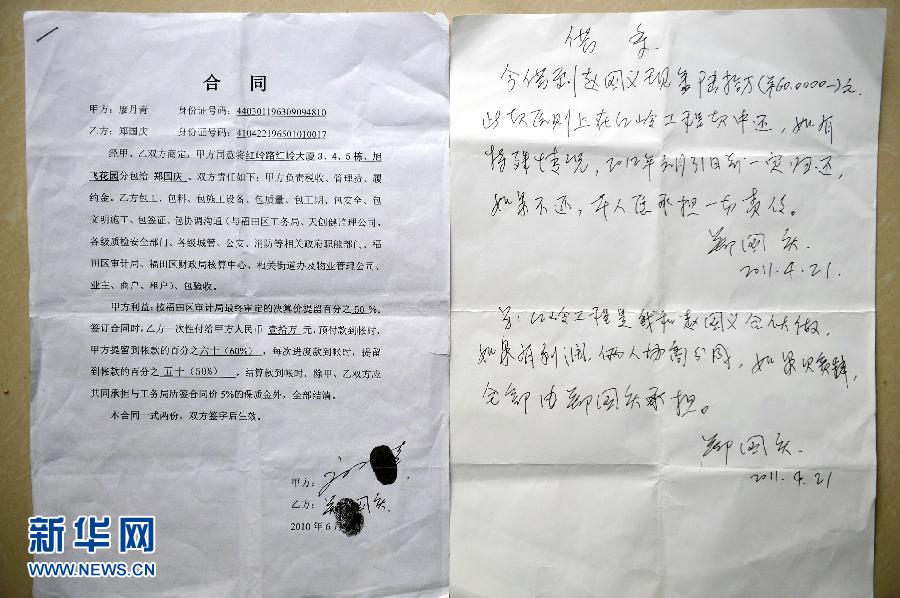 合 同
甲方：廖丹青 身份证号码：440301196309094810
乙方：郑国庆 身份证号码：410422196501010017
经甲、乙双方商定，甲方同意将红岭路红岭大厦3、4、5栋、旭
飞花园分包给 郑国庆。双方责任如下：甲方负责税收、管理费、履
约金。乙方包工、包料、包施工设备、包质量、包工期、包安全、包
文明施工、包签证、包协调沟通（与福田区工务局、天创健监理公司、
各级质检安全部门、各级城管、公安、消防等相关政府职能部门、福
田区审计局、福田区财政局核算中心、相关街道办及物业管理公司、
业主、商户、租户）、包验收。
甲方利益：按福田区审计局最终审定的决算价提留百分之 50 %。
签订合同时，乙方一次性付给甲方人民币 壹拾万 元，预付款到帐时，
甲方提留到帐款的百分之六十（60%），每次进度款到帐时，提留
到帐款的百分之 五十（50%），结算款到帐时，除甲、乙双方应
共同承担与工务局所签合同价5%的保质金外，全部结清。
本合同一式两份，双方签字后生效。
甲方：
乙方：郑国庆
2010 年 6 月
借 条
今借到赵国义现金陆拾万(￥60.0000-)元.
此款原则上在红岭工程款中还，如有
特殊情况，2012年 月31日前一定归还，
如果不还，本人愿承担一切责任。
郑国庆.
2011.4.21.
另：红岭工程是我和赵国义合伙做，
如果有利润俩人协商分闰，如果欠款
全部由郑国庆承担。
郑国庆.
2011.4.21
新华网
WWW.NEWS.CN